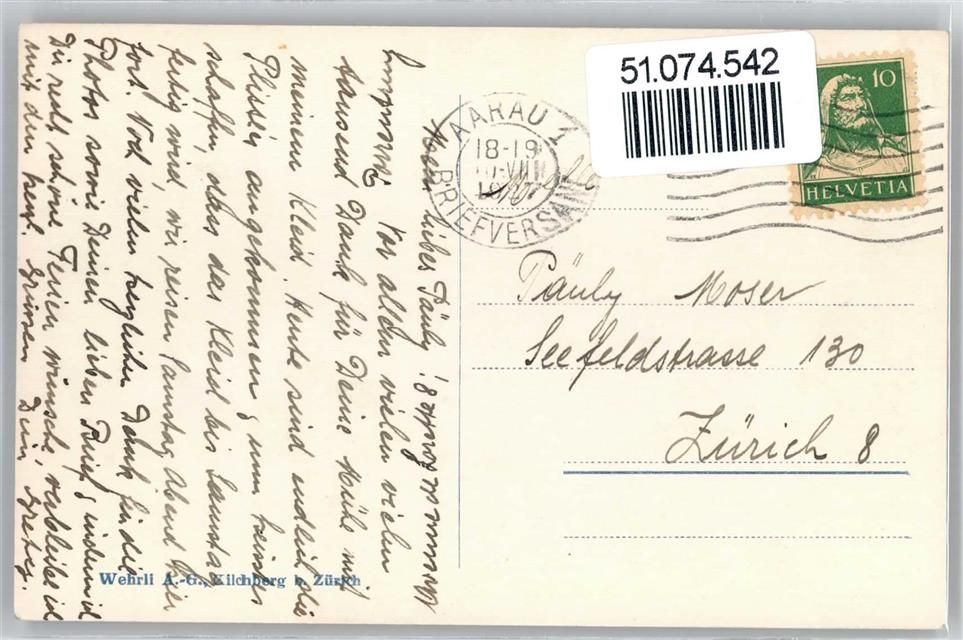 51.074.542
AARAU 1
18-19
BRIEFVERSAND
10
HELVETIA
Päuly Moser
Seefeldstrasse 130
Zürich 8
Mein liebes Päuly!
Vor allem vielen vielen
tausend Dank für Deine Mühe mit
meinem Kleid. Heute sind endlich die
Plissés angekommen & nun heisst es
schaffen, dass das Kleid bis Samstag
fertig wird, wir reisen Samstag Abend hier
fort. Noch vielen herzlichen Dank für die
Photos sowie Deinen lieben Brief & indem ich
Dir recht schöne Ferien wünsche, verbleibe ich
mit den herzl. Grüssen Dein Gretty.
Wehrli A.-G., Kilchberg b. Zürich